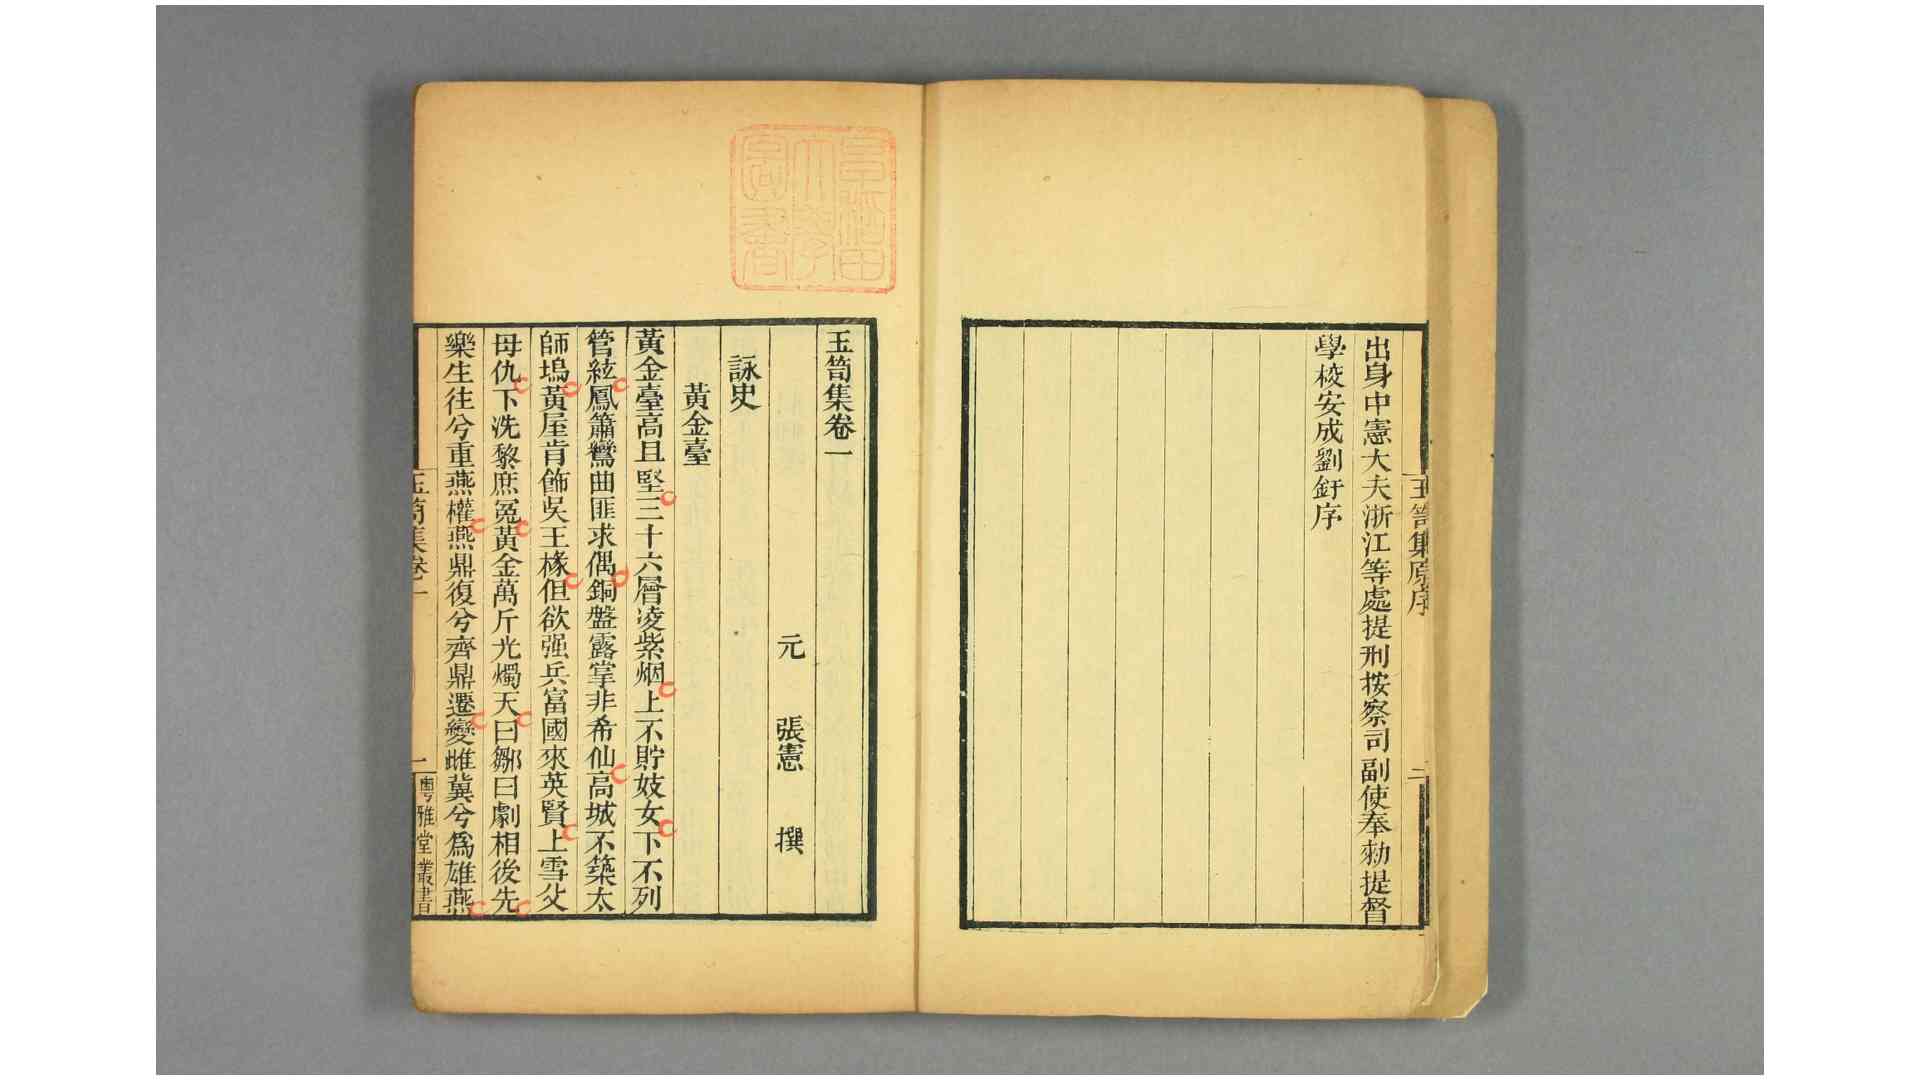 出身中憲大夫浙江等處提刑按察司副使奉勑提督
學校安成劉釪序
玉笥集原序
二
早稲田大學圖書
玉笥集卷一
元 張憲 撰
詠史
黃金臺
黃金臺高且堅三十六層凌紫烟上不貯妓女下不列
管絃鳳簫鸞曲匪求偶銅盤露掌非希仙高城不築太
師塢黃屋肯飾吳王椽但欲强兵富國來英賢上雪父
母仇下洗黎庶冤黃金萬斤光燭天曰鄒曰劇相後先
樂生往兮重燕權燕鼎復兮齊鼎遷變雌冀兮爲雄燕
玉笥集卷一
一
粵雅堂叢書